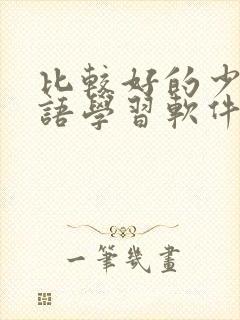 比較好的少
語學習軟件
一筆幾畫